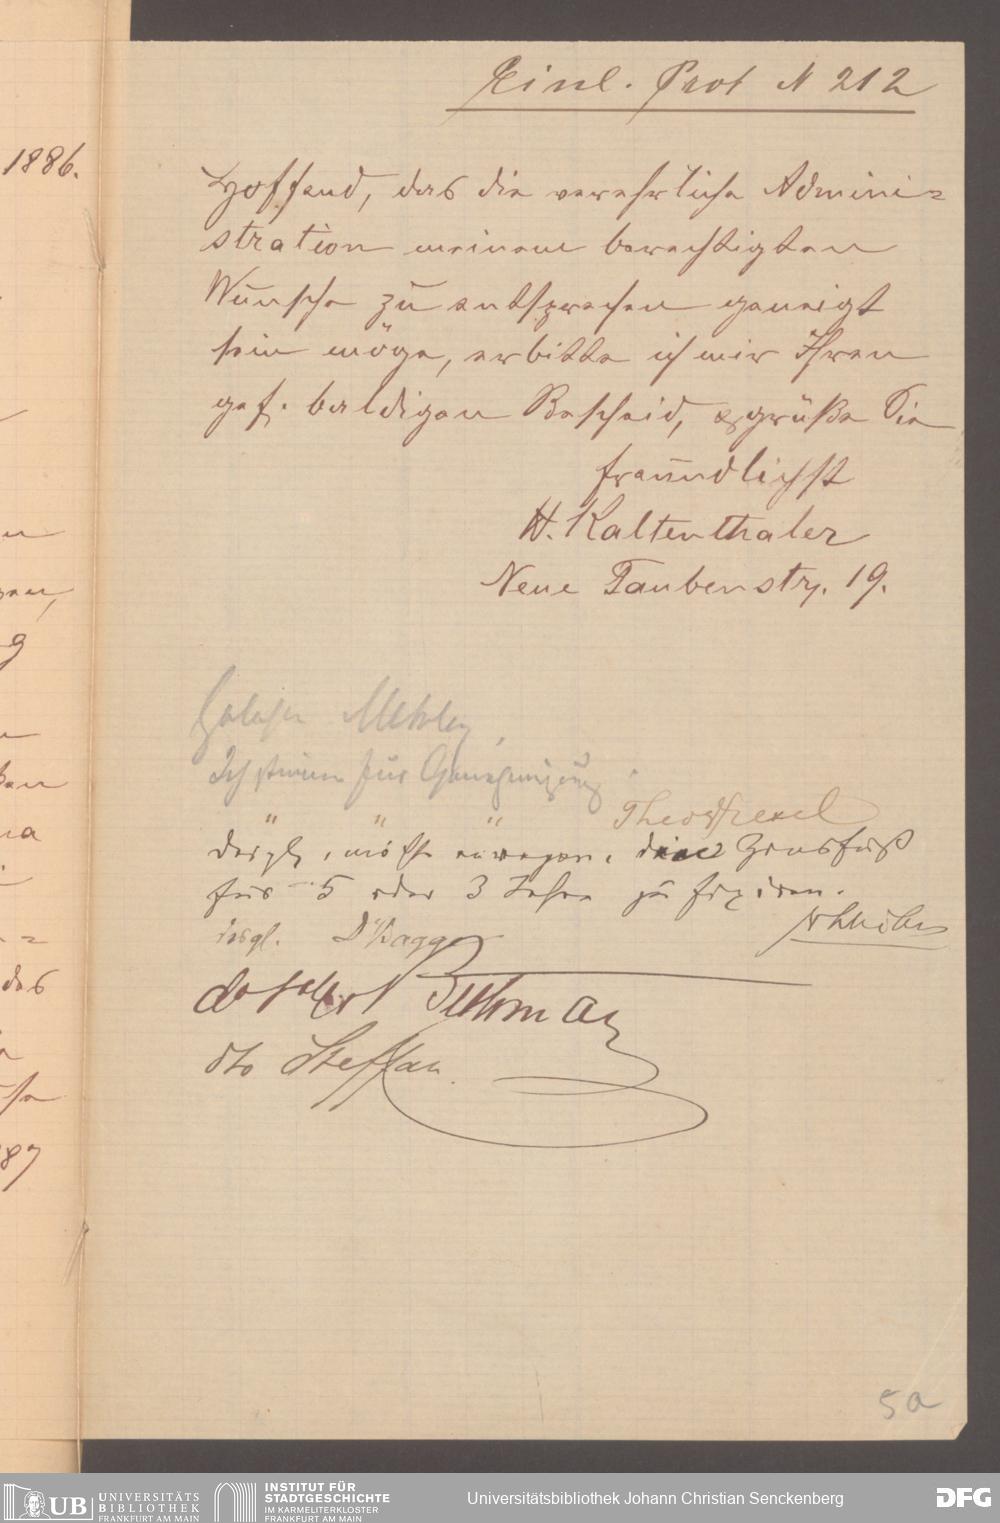 Einl. Prot N 212
1886.
Hoffend, das die verehrliche Admini=
stration meinem berechtigten
Wunsche zu entsprechen geneigt
sein möge, erbitte ich mir Ihren
gef. baldigen Bescheid, & grüße Sie
freundlichst
H. Kaltenthaler
Neue Taubenstr. 19.
Gelesen Mehler,
Ich stimme für Genehmigung.
" " "
desgl., möchte erwägen, den Zinsfuß
für 5 oder 3 Jahre zu fixiren.
desgl.
dto Steffan
5a
UB UNIVERSITÄTS
BIBLIOTHEK
FRANKFURT AM MAIN
INSTITUT FÜR
STADTGESCHICHTE
IM KARMELITERKLOSTER
FRANKFURT AM MAIN
Universitätsbibliothek Johann Christian Senckenberg
DFG